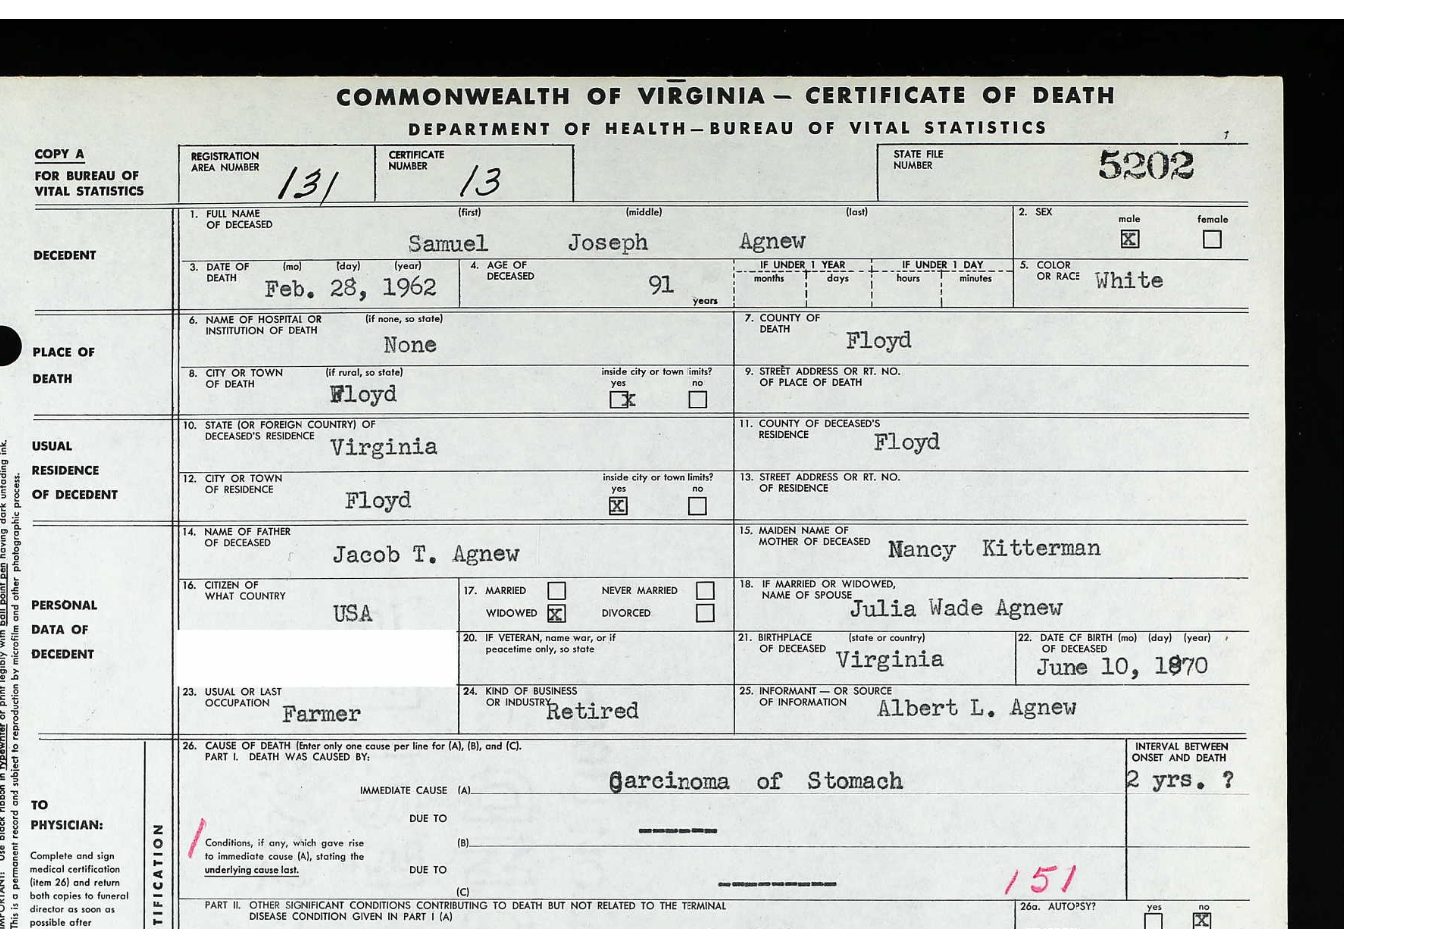 COMMONWEALTH OF VIRGINIA — CERTIFICATE OF DEATH
DEPARTMENT OF HEALTH — BUREAU OF VITAL STATISTICS
1
COPY A
FOR BUREAU OF
VITAL STATISTICS
REGISTRATION
AREA NUMBER 131
CERTIFICATE
NUMBER 13
STATE FILE
NUMBER 5202
DECEDENT
1. FULL NAME
OF DECEASED
(first) (middle) (last)
Samuel Joseph Agnew
2. SEX
male female
X
3. DATE OF
DEATH
(mo) (day) (year)
Feb. 28, 1962
4. AGE OF
DECEASED
91
years
IF UNDER 1 YEAR IF UNDER 1 DAY
months days hours minutes
5. COLOR
OR RACE White
PLACE OF
DEATH
6. NAME OF HOSPITAL OR (if none, so state)
INSTITUTION OF DEATH
None
7. COUNTY OF
DEATH
Floyd
8. CITY OR TOWN (if rural, so state)
OF DEATH
Floyd
inside city or town limits?
yes no
x
9. STREET ADDRESS OR RT. NO.
OF PLACE OF DEATH
USUAL
RESIDENCE
OF DECEDENT
10. STATE (OR FOREIGN COUNTRY) OF
DECEASED'S RESIDENCE Virginia
11. COUNTY OF DECEASED'S
RESIDENCE Floyd
12. CITY OR TOWN
OF RESIDENCE
Floyd
inside city or town limits?
yes no
X
13. STREET ADDRESS OR RT. NO.
OF RESIDENCE
PERSONAL
DATA OF
DECEDENT
14. NAME OF FATHER
OF DECEASED
Jacob T. Agnew
15. MAIDEN NAME OF
MOTHER OF DECEASED Nancy Kitterman
16. CITIZEN OF
WHAT COUNTRY
USA
17. MARRIED NEVER MARRIED
WIDOWED X DIVORCED
18. IF MARRIED OR WIDOWED,
NAME OF SPOUSE Julia Wade Agnew
20. IF VETERAN, name war, or if
peacetime only, so state
21. BIRTHPLACE (state or country)
OF DECEASED Virginia
22. DATE OF BIRTH (mo) (day) (year)
OF DECEASED
June 10, 1870
23. USUAL OR LAST
OCCUPATION Farmer
24. KIND OF BUSINESS
OR INDUSTRY Retired
25. INFORMANT — OR SOURCE
OF INFORMATION Albert L. Agnew
26. CAUSE OF DEATH (Enter only one cause per line for (A), (B), and (C).
PART I. DEATH WAS CAUSED BY:
INTERVAL BETWEEN
ONSET AND DEATH
IMMEDIATE CAUSE (A) Carcinoma of Stomach
2 yrs. ?
DUE TO
(B) -----
Conditions, if any, which gave rise
to immediate cause (A), stating the
underlying cause last.
DUE TO
(C) --------
151
PART II. OTHER SIGNIFICANT CONDITIONS CONTRIBUTING TO DEATH BUT NOT RELATED TO THE TERMINAL
DISEASE CONDITION GIVEN IN PART I (A)
26a. AUTOPSY? yes no
X
TO
PHYSICIAN:
Complete and sign
medical certification
(item 26) and return
both copies to funeral
director as soon as
possible after
TIFICATION
IMPORTANT: Use black ribbon in typewriter or print legibly with ball point pen having dark unfading ink.
This is a permanent record and subject to reproduction by microfilm and other photographic process.